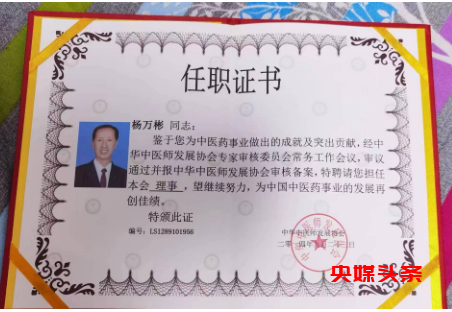 任职证书
杨万彬 同志：
鉴于您为中医药事业做出的成就及突出贡献，经中
华中医师发展协会专家审核委员会常务工作会议，审议
通过并报中华中医师发展协会审核备案，特聘请您担任
本会 理事 ，望继续努力，为中国中医药事业的发展再
创佳绩。
特颁此证
编号：LS1289101956
中华中医师发展协会
央媒头条